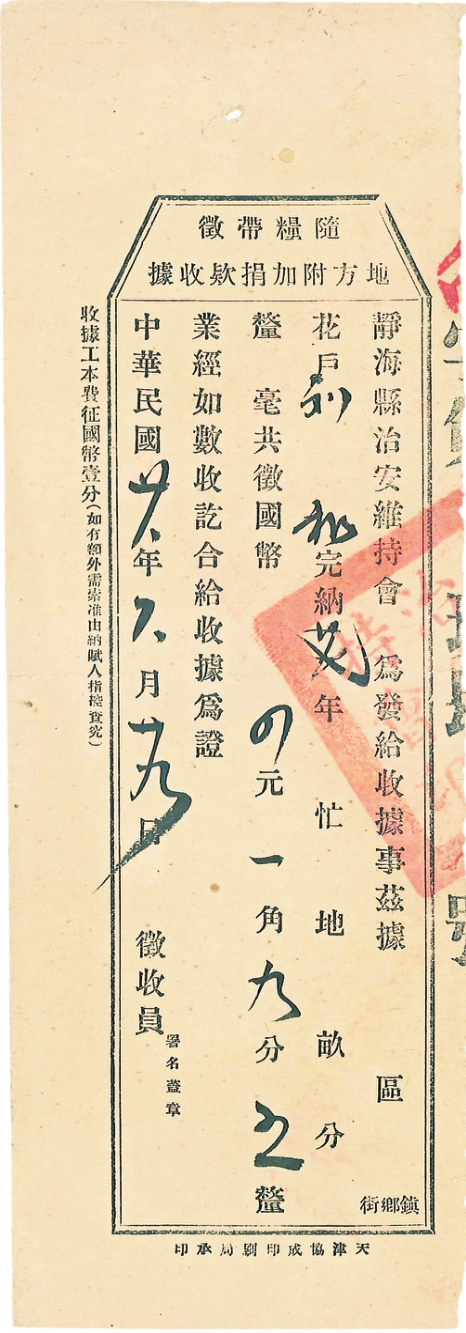 隨糧帶徵
地方附加捐款收據
靜海縣治安維持會 為發給收據事茲據 區 鎮鄉街
花戶 完納 年 忙 地 畝 分
釐 毫共徵國幣 四元一角九分五釐
業經如數收訖合給收據為證
中華民國廿八年 月廿九日 徵收員 署名蓋章
收據工本費征國幣壹分(如有額外需索准由納賦人指控查究)
天津協成印刷局承印